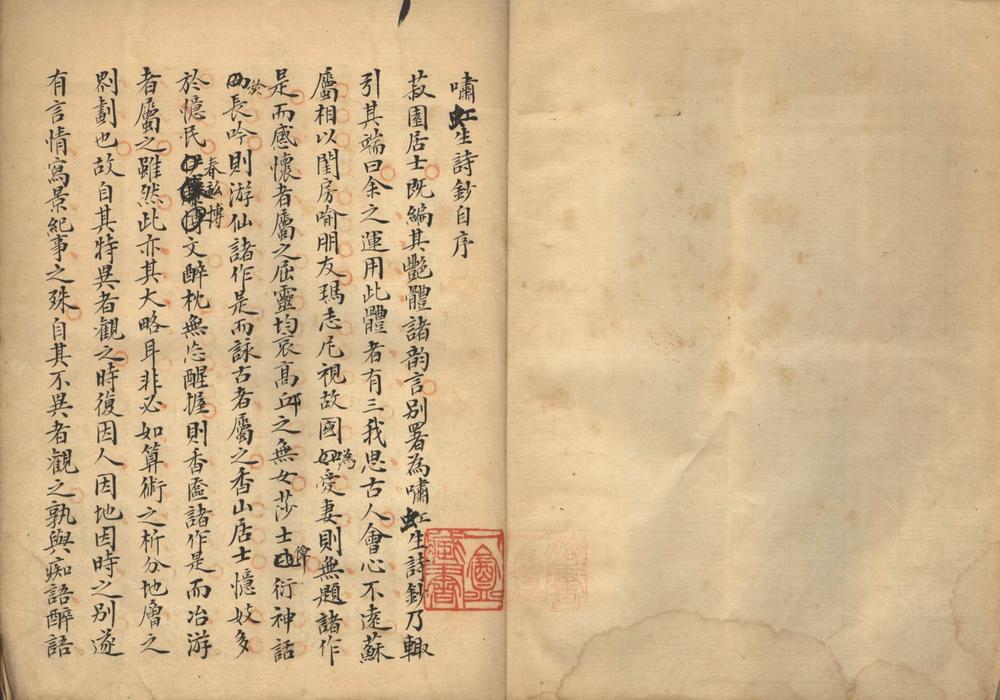 嘯虹生詩鈔自序
菽園居士既編其艷體諸韵言別署為嘯虹生詩鈔乃輙
引其端曰余之運用此體者有三我思古人會心不遠蘇
屬相以閨房喻朋友瑪志尼視故國為愛妻則無題諸作
是而感懷者屬之屈靈均哀高邱之無女莎士偉衍神話
於長吟則游仙諸作是而詠古者屬之香山居士憶妓多
於憶民春訟博文醉枕無忘醒握則香奩諸作是而冶游
者屬之雖然此亦其大略耳非必如算術之析分地層之
剔劃也故自其特異者觀之時復因人因地因時之別遂
有言情寫景紀事之殊自其不異者觀之孰與痴語醉語
藏書